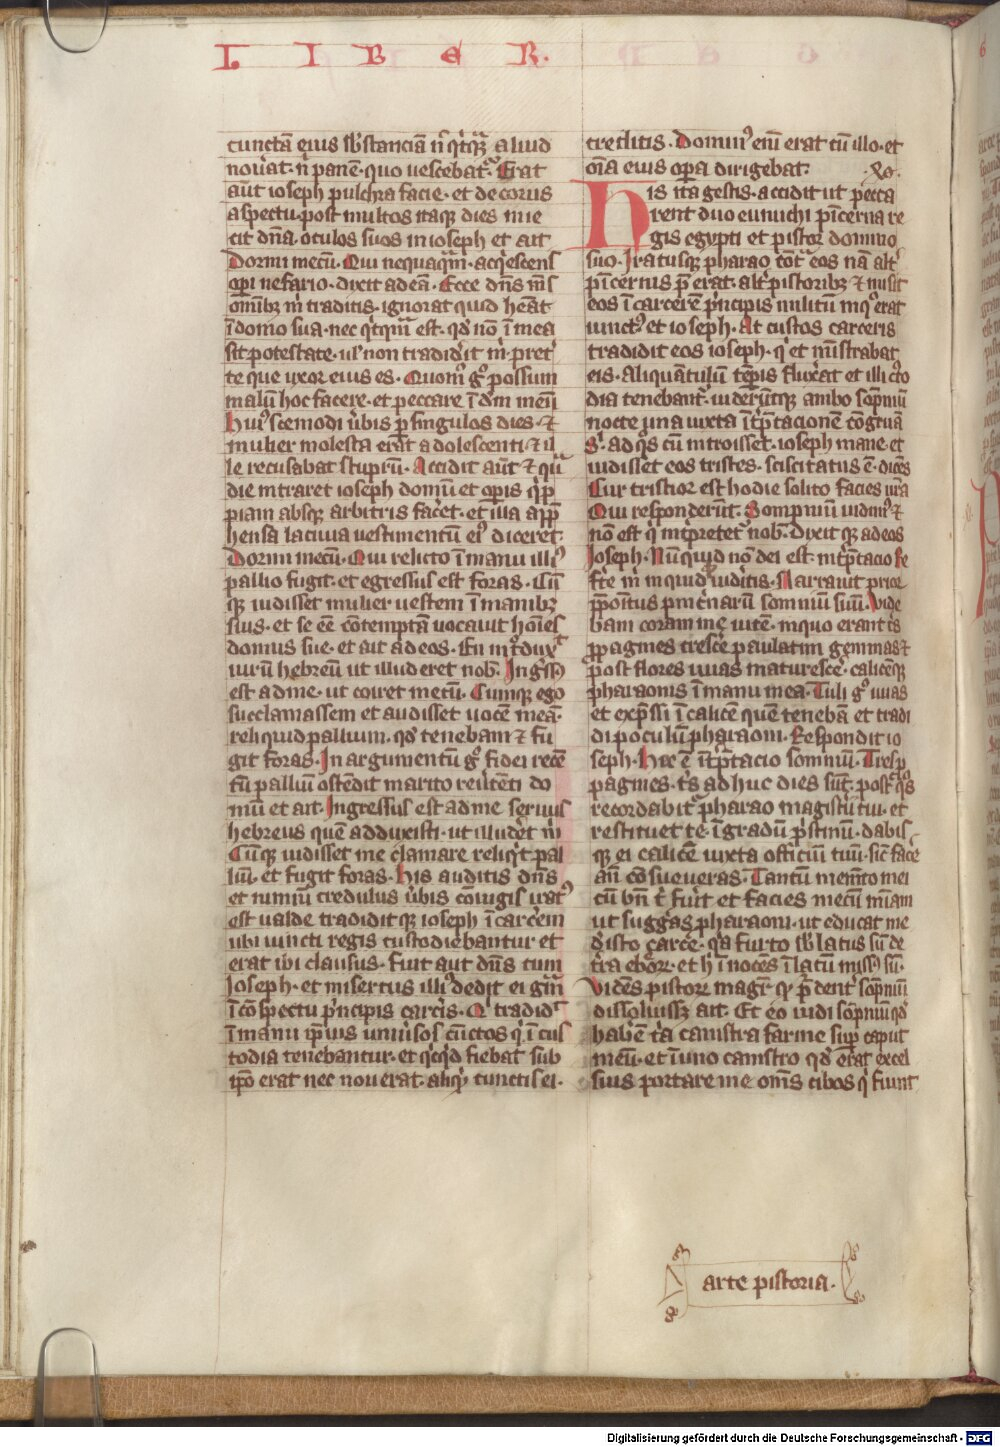 L I B E R.
cunctã eius sb̾stanciã n̄ qͥcqᷓ aliud
nouat̾. n̄ panē. quo uescebat̾. Erat
aūt ioseph pulchra facie. et decorus
aspectu. post multos itaqꝫ dies inie
cit dñā oculos suos in ioseph et ait
Dormi mecū. Qui nequaqᷓm. acqͥescens
oꝑi nefario. dixit ad eã. Ecce dñs ms̄
omibꝫ m̄ traditis. ignorat quid heãt
ī domo sua. nec qͥcqᷓm est. qd̾ nō ī mea
sit potestate. ul̾ non tradid̾it m̄. pret̾
te que uxor eius es. Quom̄ gͦ possum
malū hoc facere. et peccare ī dm̄ meū
Huiꝰscemodi ūbis ꝑ singulos dies. ⁊
mulier molesta erat adolescenti. ⁊ il
le recusabat stuprū. Accidit aūt ⁊ qͣ
die intraret ioseph domū et oꝑis qͥp
piam absqꝫ arbitris fac̾et. et illa app̄
hensa lacinia uestimentū eiꝰ diceret.
Dormi mecū. Qui relicto ī manu illiꝰ
pallio fugit. et egressus est foras. Cū
qꝫ uidisset mulier uestem ī manibꝫ
suis. et se eē cōtemptã uocauit hoīes
domus sue. et ait ad eos. En intͦduxͭ
uirū hebreū ut illuderet nob̄. Ingͥssꝰ
est ad me. ut coiret mecū. Cumqꝫ ego
succlamassem et audisset uocē meã.
reliquid pallium. qd̾ tenebam ⁊ fu
git foras. In argumentū gͦ fidei retē
tū palliū ostēdit marito reu̾tēti do
mū et ait. Ingressus est ad me seruus
hebreus quē adduxisti. ut illud̾et m̄
Cūqꝫ uidisset me clamare reliqͥt pal
liū. et fugit foras. His auditis dñs
et nimiū credulus ūbis cōiugis iratꝰ
est ualde tradiditqꝫ ioseph ī carc̾em
ubi uincti regis custodiebantur et
erat ibi clausus. Fuit aūt dñs cum
Ioseph. et misertus illiꝰ dedit ei gr̄m
ī cōspectu pͥncipis carc̾is. Qͥ tradidͭ
ī manu ip̄ius uniu̾sos cūctos qͥ ī cus
todia tenebantur. et qͥcqͥd fiebat sub
ip̄o erat nec nouerat. aliqͥd cunctis ei.
creditis. Dominꝰ enī erat cū illo. et
oīa eius oꝑa dirigebat. .xl.
His ita gestis. accidit ut pecca
rent duo eunuchi pīcerna re
gis egypti et pistor domino
suo. Iratusqꝫ pharao cōt̾ eos nã alt̾
pīcernis p̄erat. alt̾ pistoribꝫ ⁊ misit
eos ī carcerē pͥncipis militū in qͦ erat
uinctꝰ et ioseph. At custos carceris
tradidit eos ioseph. qͥ et mīstrabat
eis. aliquãtulū tēpis flux̾at et illi cͧto
dia tenebant̾. uiderūtqꝫ ambo sōpniū
nocte una iuxta īt̾p̄tacionē cōgruã
sͥ. ad qͦs cū introisset. ioseph mane. et
uidisset eos tristes. sciscitatus ē. dicēs
Cur tristior est hodie solito facies ur̄a
Qui responderūt. Sompniū uidimꝰ ⁊
non est qͥ int̾pretet̾ nob̄. Dixitqꝫ ad eos
Ioseph. Nūquid nō dei est. int̾p̄tacio Re
fr̾te m̄ inquid uid̾itis. Narrauit prior
p̄poītus pinc̾narū somniū suū. Vide
bam coram me uitē. in quo erant tͥs
ꝓpagines cresc̾e paulatim gemmas ⁊
post flores uuas maturesc̾e. calicēqꝫ
pharaonis ī manu mea. Tuli gͦ uuas
et exp̄ssi ī calicē quē tenebã et tradi
di poculū pharaoni. Respondit io
seph. Hec ē īt̾p̄tacio somniū. Tres ꝓ
pagines. tͥs adhuc dies sūt. post qͦs
recordabit̾ pharao magist̾ii tui. et
restituet te. ī gradū pͥstinū. dabis
qꝫ ei calicē iuxta officiū tuū. sic̄ fac̾e
an̄ cōsueueras. Tantū mem̄to mei
cū bn̄ t̾ fu̾it et facies mecū mīam
ut sugg̾as pharaoni. ut educat me
d̾ isto carc̾e. qͥa furto sb̾latus sū de
t̾ra ebōr̾. et h̾ īnocēs ī latū missꝰ sū.
Vidēs pistorꝝ magr̄ qꝫ p̄dent̾ sōpniū
dissoluiss̾. ait. Et eo uidi sōpniū qd̾
habēe tͥa canistra farine suꝑ caput
meū. et ī uno canistro qd̾ erat excel
sius portare me omēs cibos qͥ fiunt
arte pistoria.
Digitalisierung gefördert durch die Deutsche Forschungsgemeinschaft - DFG